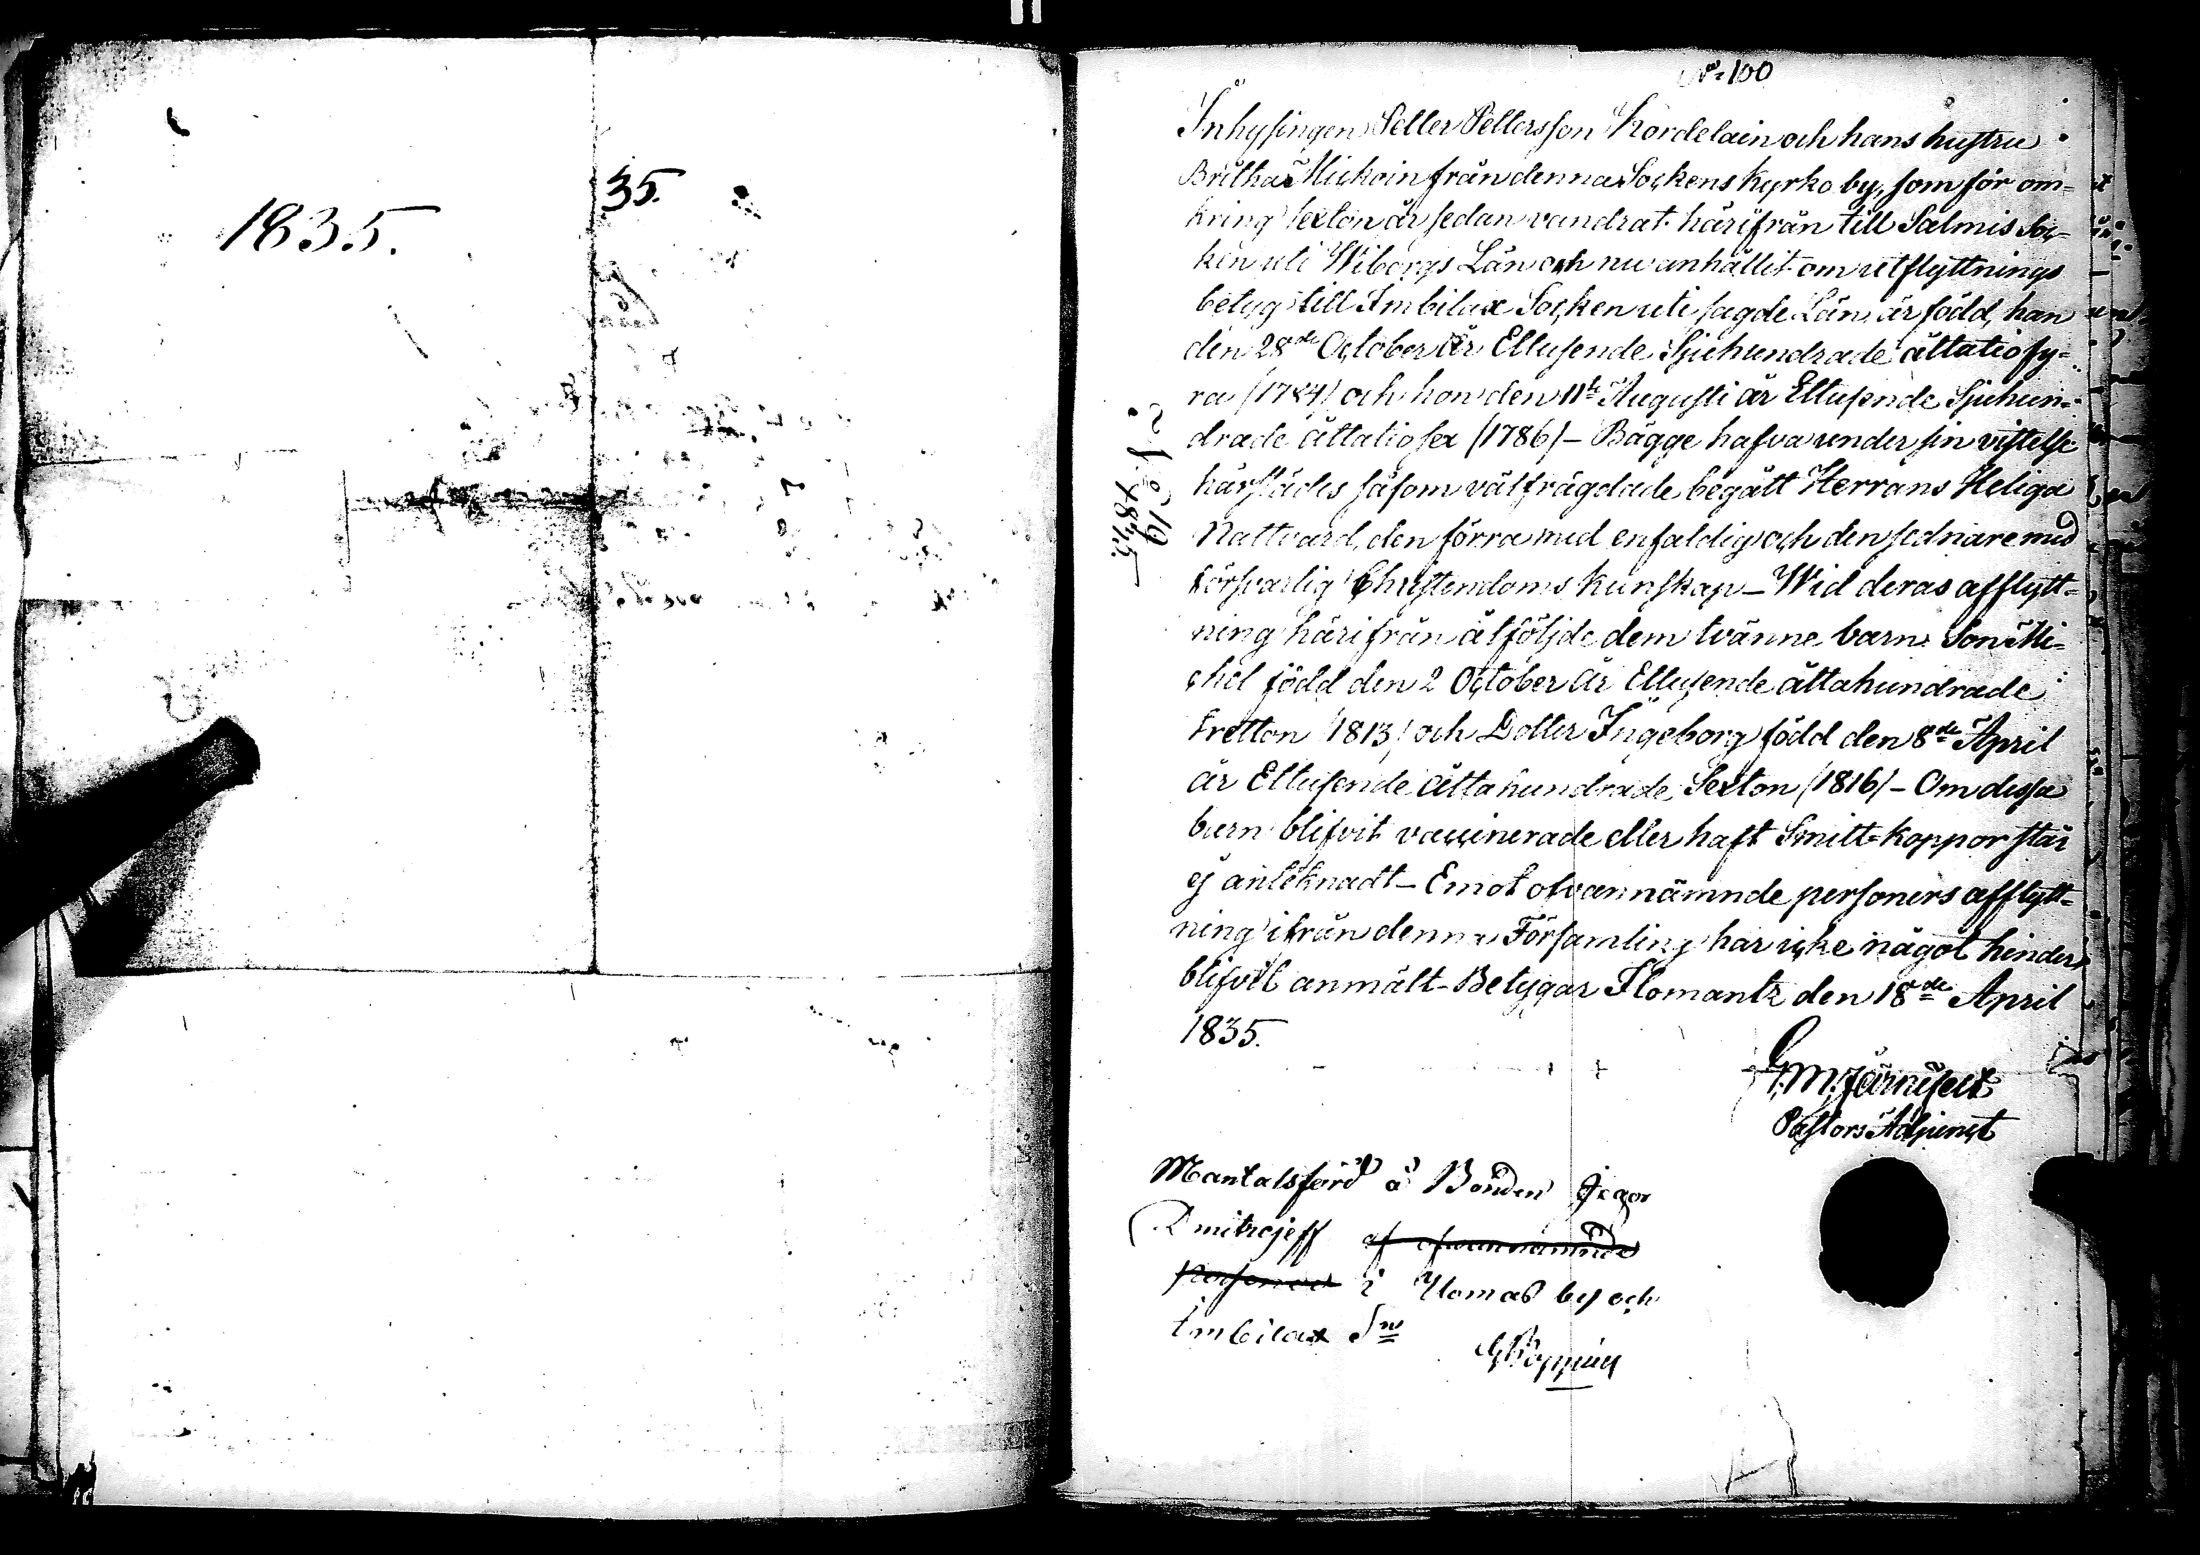 1835.
35.
No 100
Inhysingen Petter Pettersson Kordelain och hans hustru
Britha Mickoin från denna Sockens Kyrko by, som för om-
kring sexton år sedan vandrat härifrån till Salmis Soc-
ken uti Wiborgs Län och nu anhållit om utflyttnings
betyg till Imbilax Socken uti sagde Län, är född, han
den 28de October År Ettusende Sjuhundrade åttatiofy-
ra (1784) och hon den 11te Augusti år Ettusende Sjuhun-
drade åttatiosex (1786) – Bägge hafva under sin vistelse
härstädes såsom välfrägdade begått Herrans Heliga
Nattvard, den förra med enfaldig och den sednare med
försvarlig Christendoms kunskap – Wid deras afflytt-
ning härifrån åtföljde dem tvänne barn: Son Mi-
chel född den 2 October År Ettusende åttahundrade
tretton (1813) och Dotter Ingeborg född den 8de April
år Ettusende åttahundrade Sexton (1816) – Om dessa
barn blifvit vaccinerade eller haft Smitt-koppor står
ej antecknadt – Emot ofvannämnde personers afflytt-
ning ifrån denna Församling har icke något hinder
blifvit anmält – Betygar Ilomantz den 18de April
1835.
G. M. Järnefelt
Pastors Adjunct
No 19
1835
Mantalsförd å Bonden Jegor
Dmitrejeff af ofvannämnde
personer i Ilomas by och
Imbilax Sn